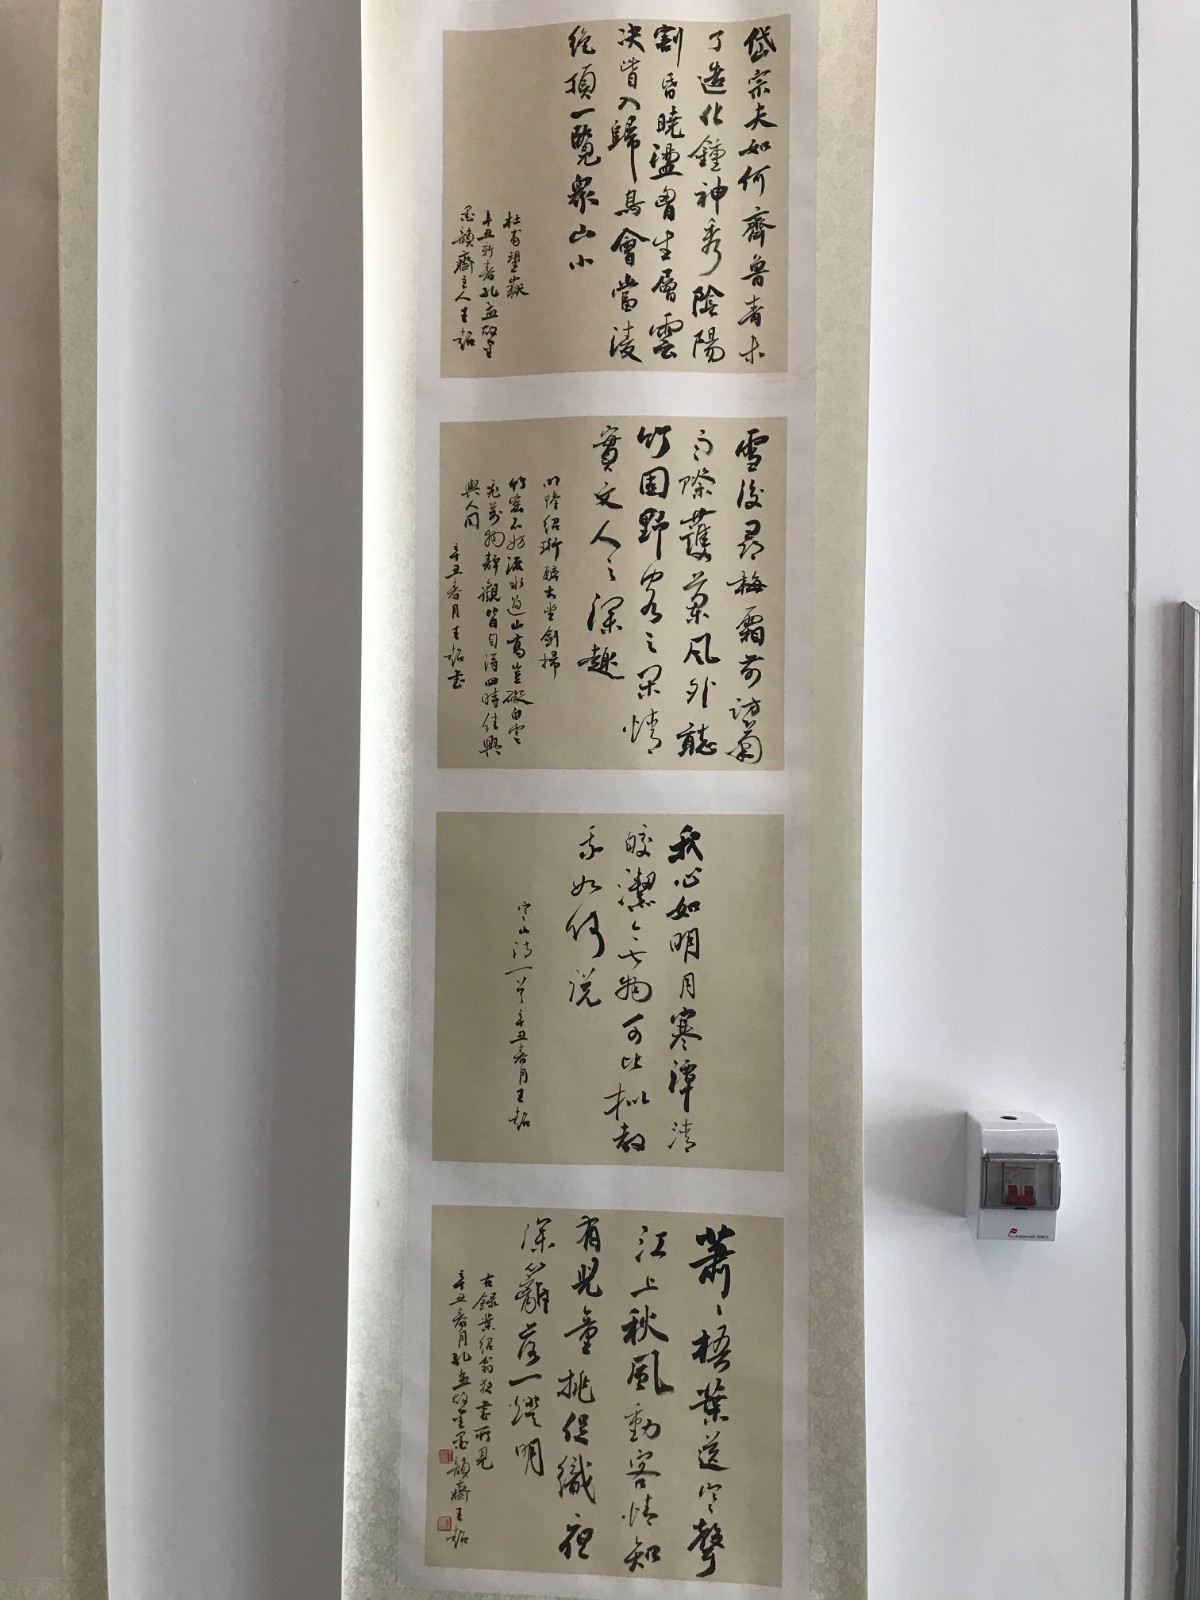 岱宗夫如何齊魯青未
了造化鍾神秀陰陽
割昏曉盪胷生層雲
决眥入歸鳥會當淩
絶頂一覽衆山小
杜甫望嶽
辛丑新春孔孟故里
墨韻齋主人王
雪後尋梅霜前訪菊
雨際護蘭風外聽
竹固野客之閑情
實文人之深趣
明陸紹珩醉古堂劍掃
竹密不妨流水過山高豈礙白雲
飛萬物静觀皆自得四時佳興
與人同
辛丑春月王書
我心如明月寒潭清
皎潔〻無物可比擬教
我如何說
寒山詩一首辛丑春月王
蕭〻梧葉送寒聲
江上秋風動客情知
有兒童挑促織夜
深籬落一燈明
古録葉紹翁夜書所見
辛丑春月孔孟故里墨韻齋王